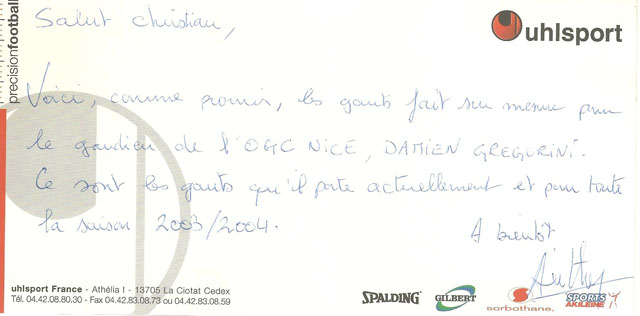 Salut Christian,
uhlsport
precisionfootball
Voici, comme promis, les gants fait sur mesure pour
le gardien de l'OGC NICE, DAMIEN GREGORINI.
Ce sont les gants qu'il porte actuellement et pour toute
la saison 2003/2004.
A bientôt
uhlsport France - Athélia I - 13705 La Ciotat Cedex
Tél. 04.42.08.80.30 - Fax 04.42.83.08.73 ou 04.42.83.08.59
SPALDING
GILBERT
sorbothane.
SPORTS
AKILEINE